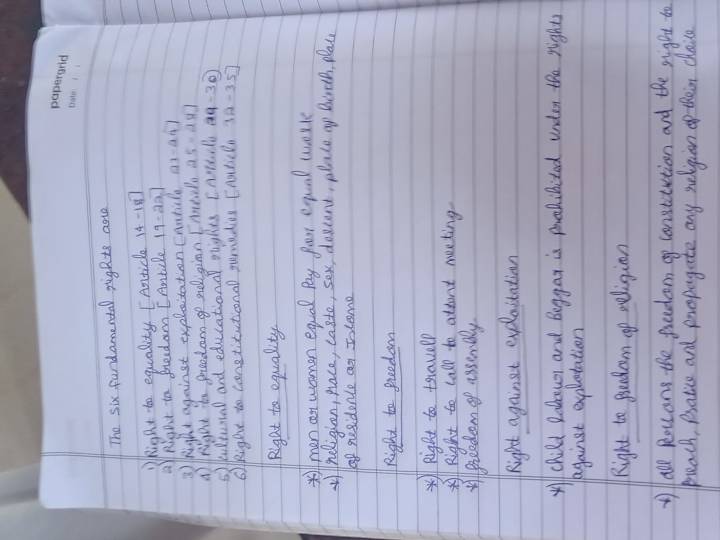 papergrid
Date: / /
The six fundamental rights are
1) Right to equality [Article 14-18]
2) Right to freedom [Article 19-22]
3) Right against exploitation [Article 23-24]
4) Right to freedom of religion [Article 25-28]
5) Cultural and educational rights [Article 29-30]
6) Right to constitutional remedies [Article 32-35]
Right to equality
*) men or women equal Pay for equal work
*) religion, race, caste, sex, descent, place of birth, place
of residence or Income
Right to freedom
*) Right to travell
*) Right to call to attent meeting
*) freedom of assembly
Right against exploitation
*) child labour and beggar is prohibited under the rights
against explotation
Right to freedom of religion
*) all persons the freedom of constitution and the right to
preach, Pratice and propagate any religion of their choice